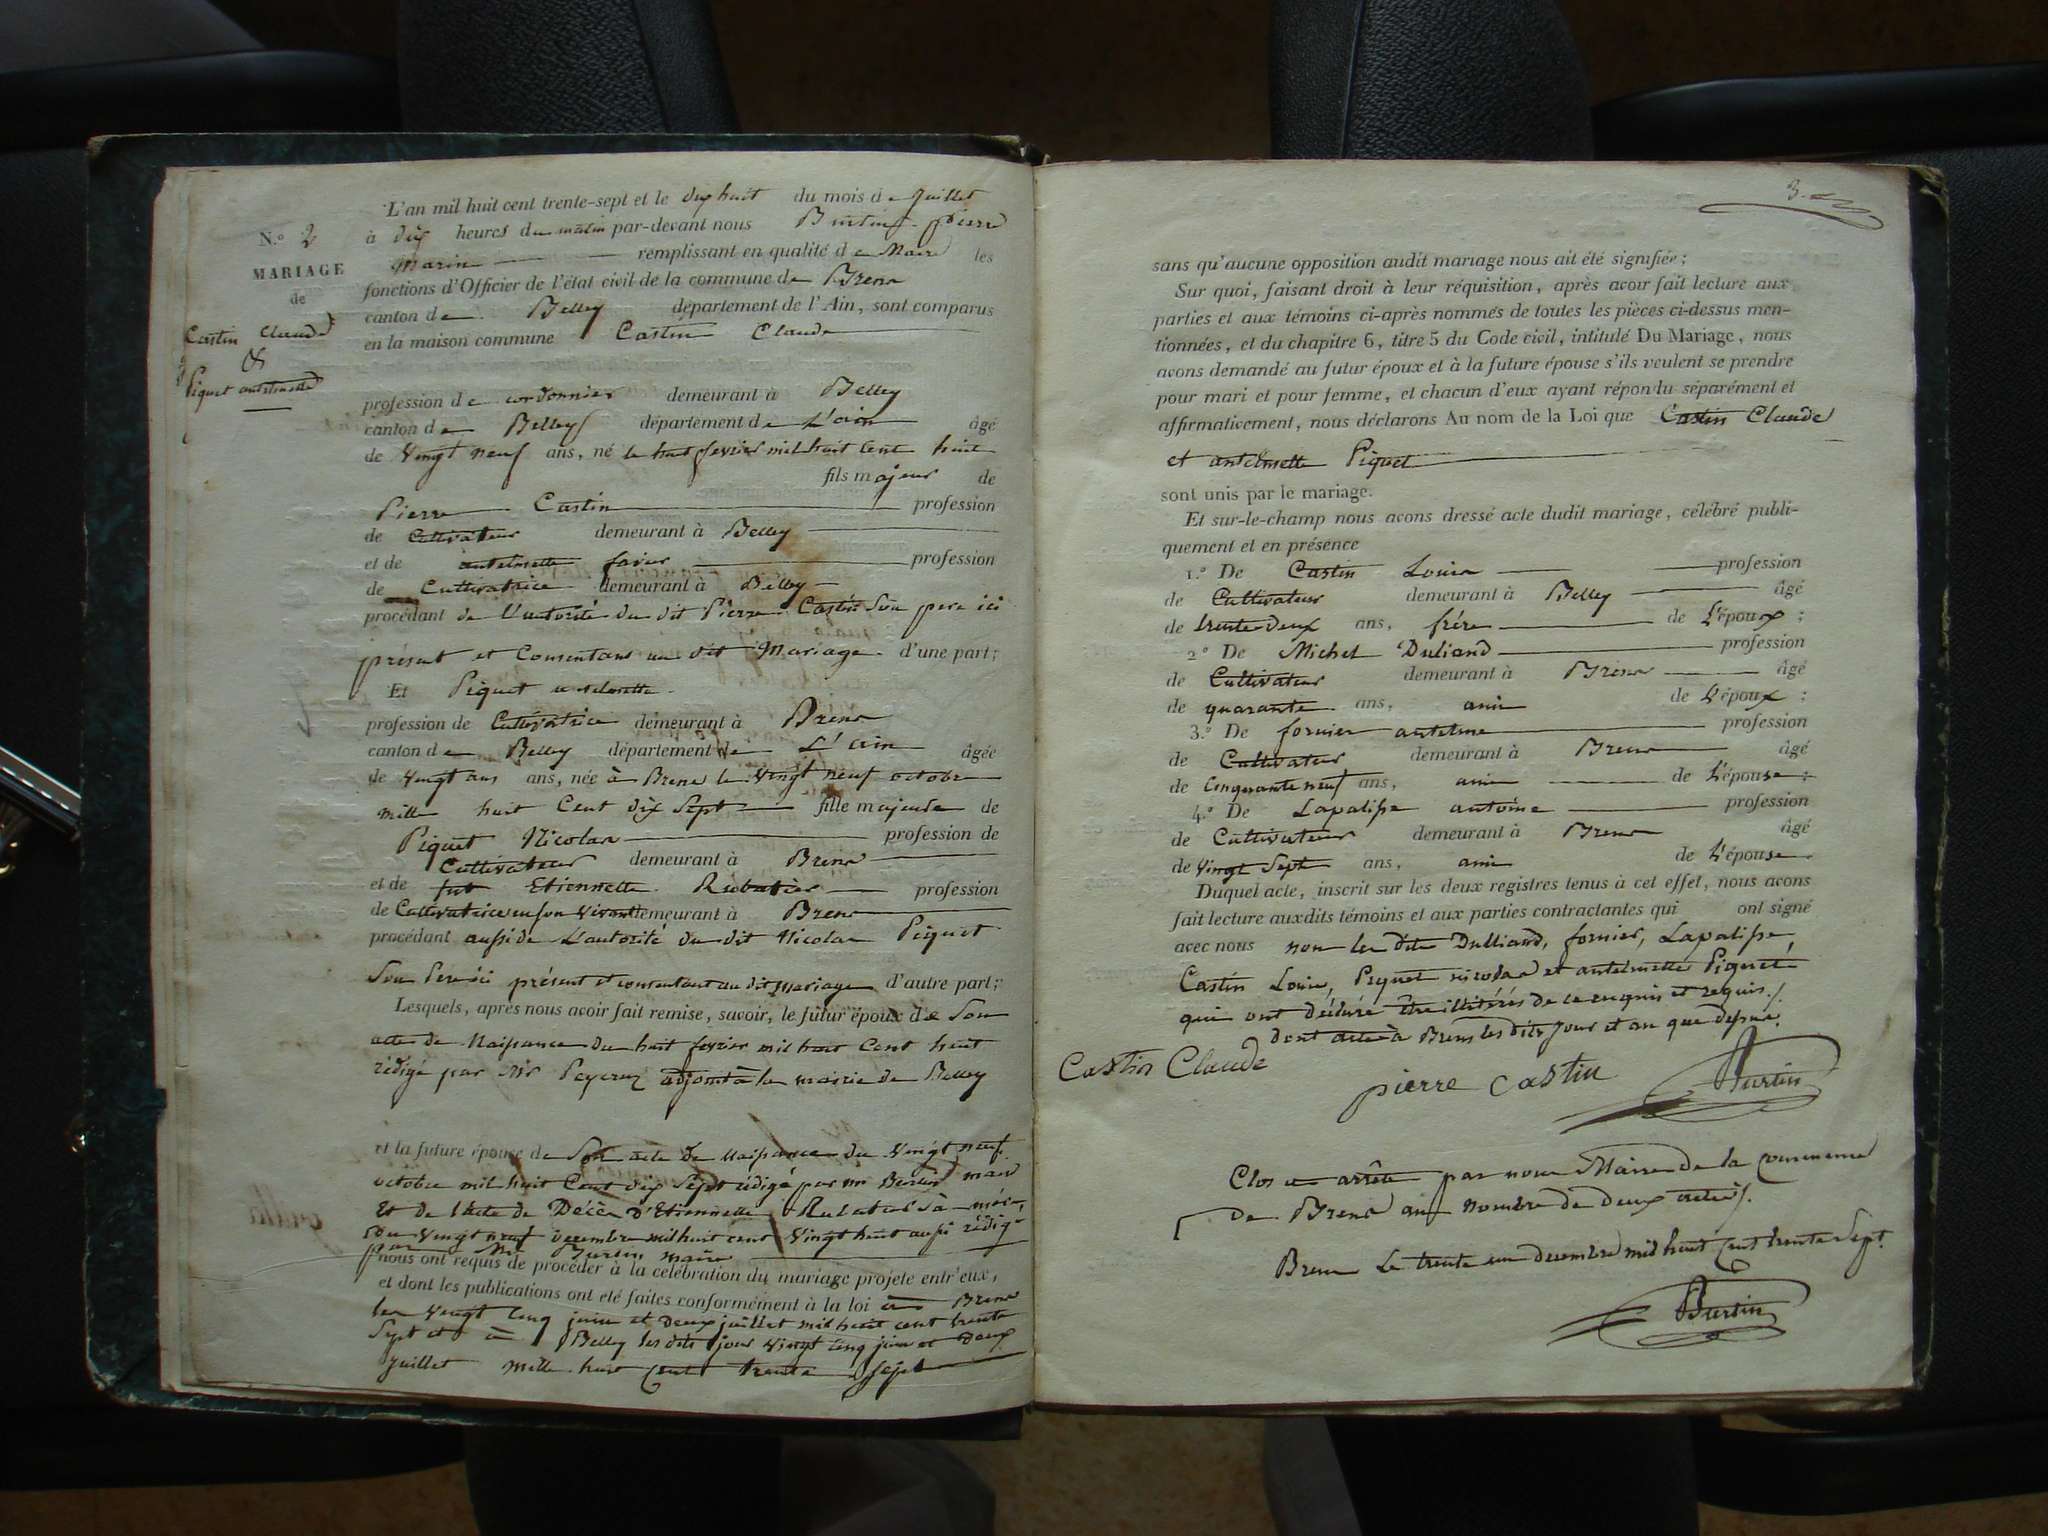 L'an mil huit cent trente-sept et le dix huit du mois de juillet
N.º 2 à dix heures du matin par-devant nous Burtin pierre
MARIAGE
de
Castin Claude
&
Piquet antelmette
Marin remplissant en qualité de Maire les
fonctions d'Officier de l'état civil de la commune de Brens
canton de Belley département de l'Ain, sont comparus
en la maison commune Castin Claude
profession de cordonnier demeurant à Belley
canton de Belley département de L'ain âgé
de Vingt neuf ans, né le huit fevrier mil huit Cent huit
fils majeur de
Pierre Castin profession
de Cultivateur demeurant à Belley
et de antelmette favier profession
de Cultivatrice demeurant à Belley
procédant de L'autorité du dit Pierre Castin Son pere ici
présent et Consentant au dit Mariage d'une part;
Et Piquet antelmette
profession de Cultivatrice demeurant à Brens
canton de Belley département de L'ain âgée
de vingt ans ans, née à Brens le Vingt neuf octobre
mille huit Cent dix Sept fille majeure de
Piquet Nicolas profession de
Cultivateur demeurant à Brens
et de fut Etiennette Rubatier profession
de Cultivatrice en son vivant demeurant à Brens
procédant aussi de L'autorité du dit Nicolas Piquet
Son Pere ici présent et consentant au dit mariage d'autre part;
Lesquels, après nous avoir fait remise, savoir, le futur époux de Son
acte de Naissance du huit fevrier mil huit Cent huit
rédigé par Mr adjoint à la mairie de Belley
et la future épouse de Son acte de Naissance du Vingt neuf
octobre mil huit Cent dix Sept rédigé par mr Burtin maire
Et de l'acte de Décès D'Etiennette Sa mère,
du Vingt neuf decembre mil huit cent Vingt huit aussi rédigé
par Mr Burtin maire
nous ont requis de procéder à la célébration du mariage projeté entr'eux,
et dont les publications ont été faites conformément à la loi à Brens
les Vingt cinq juin et deux juillet mil huit cent trente
Sept et à Belley les dits jour vingt cinq juin et deux
juillet mille huit Cent trente Sept
3.
sans qu'aucune opposition audit mariage nous ait été signifiée;
Sur quoi, faisant droit à leur réquisition, après avoir fait lecture aux
parties et aux témoins ci-après nommés de toutes les pièces ci-dessus men-
tionnées, et du chapitre 6, titre 5 du Code civil, intitulé Du Mariage, nous
avons demandé au futur époux et à la future épouse s'ils veulent se prendre
pour mari et pour femme, et chacun d'eux ayant répondu séparément et
affirmativement, nous déclarons Au nom de la Loi que Castin Claude
et antelmette Piquet
sont unis par le mariage.
Et sur-le-champ nous avons dressé acte dudit mariage, célébré publi-
quement et en présence
1.º De Castin Louis profession
de Cultivateur demeurant à Belley âgé
de trente deux ans, frère de L'époux;
2.º De Michel Duliand profession
de Cultivateur demeurant à Brens âgé
de quarante ans, ami de L'époux;
3.º De fornier antelme profession
de Cultivateur demeurant à Brens âgé
de Cinquante neuf ans, ami de L'épouse;
4.º De Lapalisse antoine profession
de Cultivateur demeurant à Brens âgé
de vingt Sept ans, ami de L'épouse.
Duquel acte, inscrit sur les deux registres tenus à cet effet, nous avons
fait lecture auxdits témoins et aux parties contractantes qui ont signé
avec nous non les dits Dulliand, fornier, Lapalisse,
Castin Louis, Piquet nicolas et antelmette Piquet,
qui ont déclaré être illitérés de ce enquis et requis./.
dont acte à Brens les dits jour et an que dessus.
Castin Claude pierre castin Burtin
Clos et arrêté par nous Maire de la commune
de Brens au nombre de deux actes/.
Brens Le trente un decembre mil huit Cent trente Sept.
Burtin